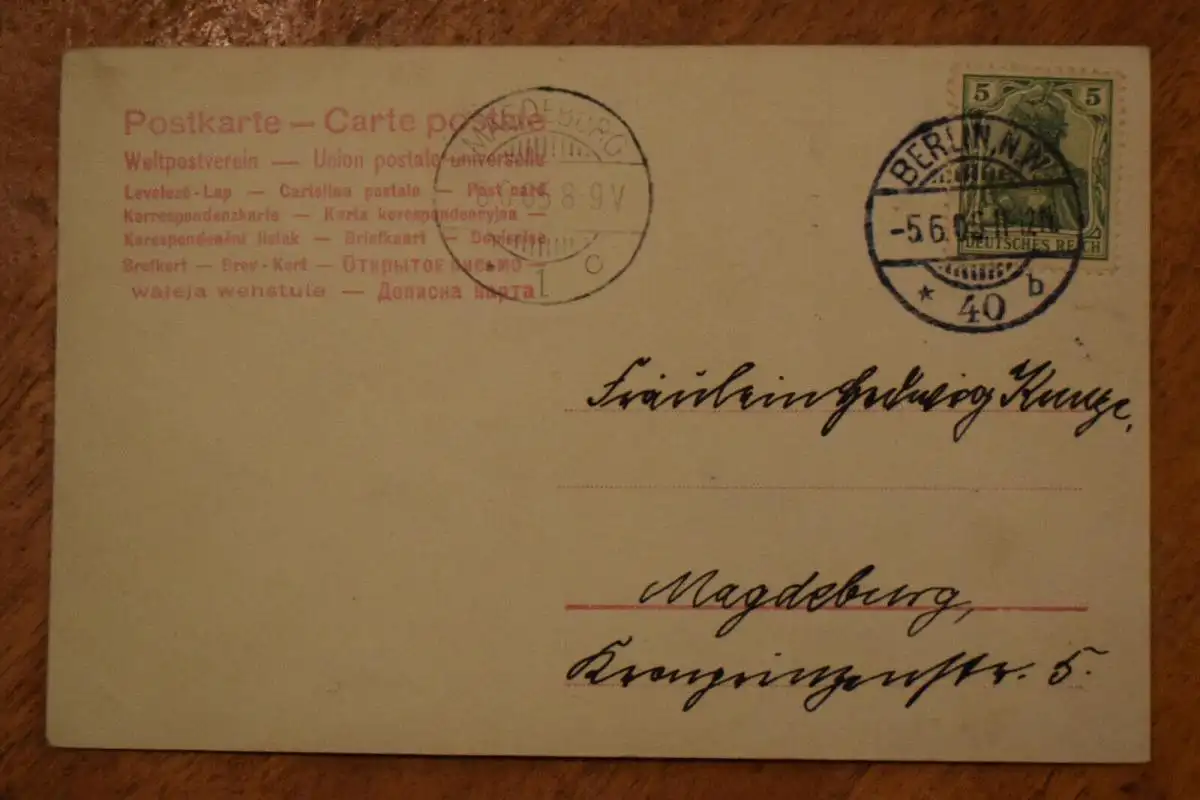 Postkarte — Carte postale
Weltpostverein — Union postale universelle
Levelező-Lap — Cartolina postale — Post card
Korrespondenzkarte — Karta korespondencyjna —
Korespondenční lístek — Briefkaart — Dopisnice
Brefkort — Brev-Kort — Открытое письмо —
waleja wehstule — Дописна карта
MAGDEBURG
6.6.05 8-9V
* 1 c
5 5
BERLIN, N.W.
-5.6.05.11-12N.
DEUTSCHES REICH
* 40 b
Fräulein Hedwig Kunze,
Magdeburg,
Kronprinzenstr. 5.